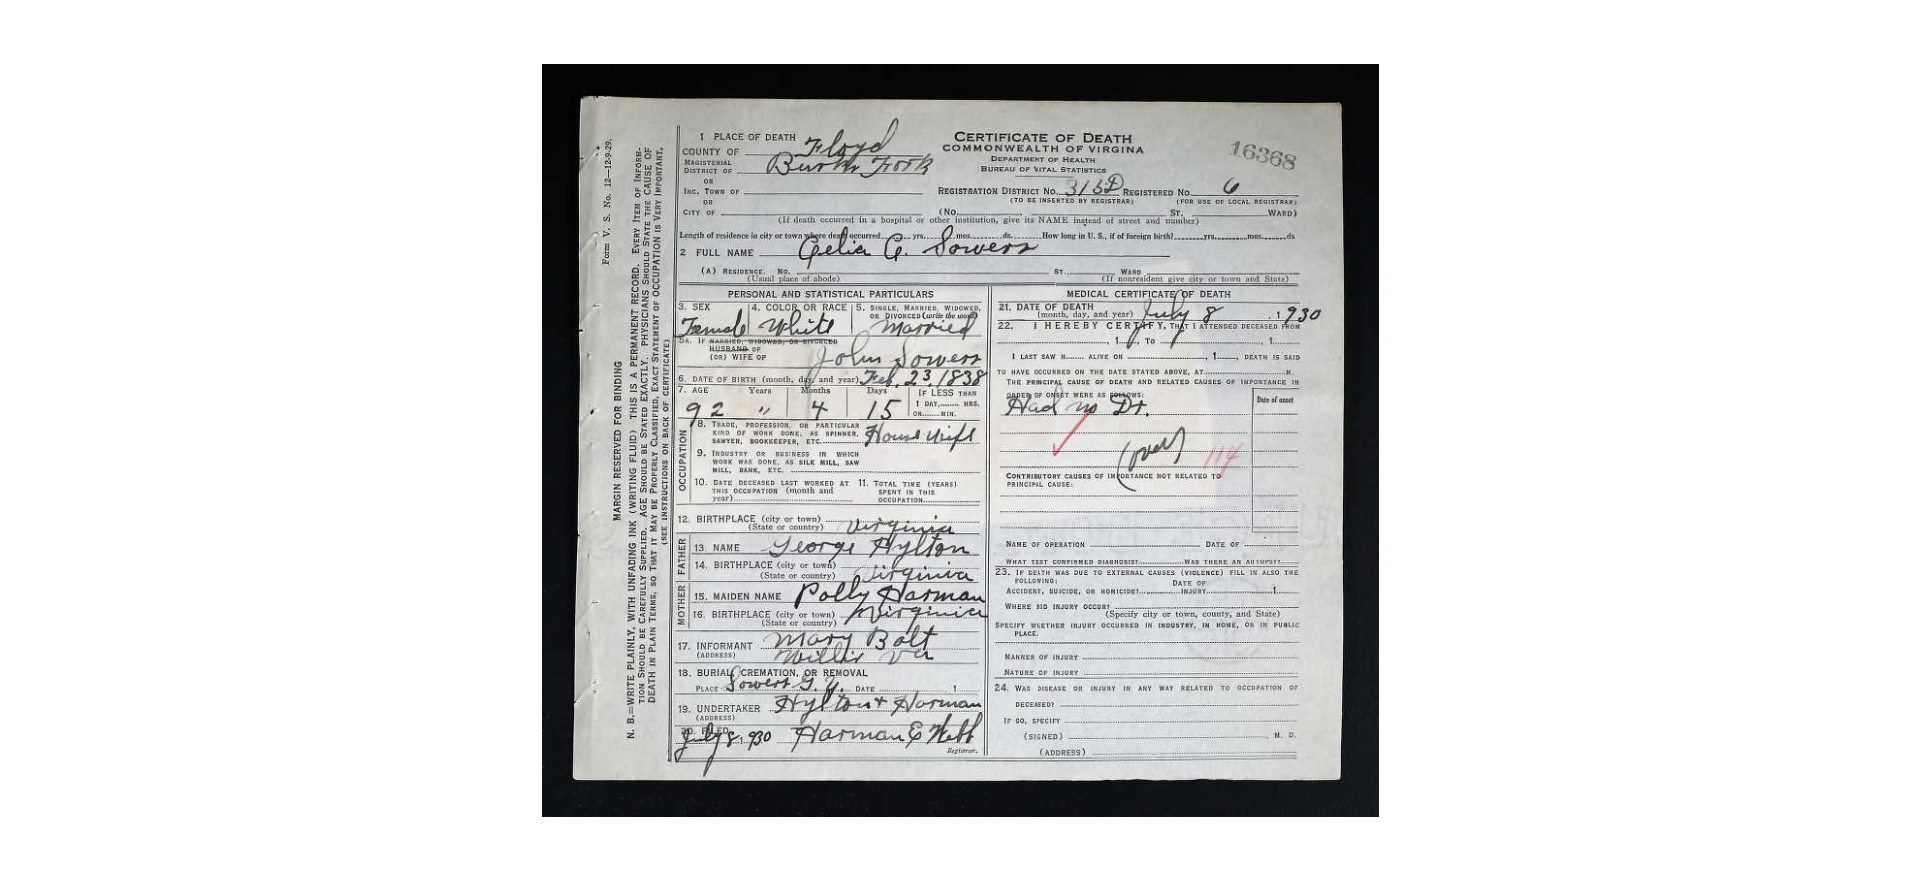 Form V. S. No. 12—12-9-29.
MARGIN RESERVED FOR BINDING
N. B.—WRITE PLAINLY, WITH UNFADING INK (WRITING FLUID) THIS IS A PERMANENT RECORD. EVERY ITEM OF INFORM-
TION SHOULD BE CAREFULLY SUPPLIED. AGE SHOULD BE STATED EXACTLY. PHYSICIANS SHOULD STATE THE CAUSE OF
DEATH IN PLAIN TERMS, SO THAT IT MAY BE PROPERLY CLASSIFIED. EXACT STATEMENT OF OCCUPATION IS VERY IMPORTANT.
(SEE INSTRUCTIONS ON BACK OF CERTIFICATE)
1 PLACE OF DEATH
COUNTY OF Floyd
MAGISTERIAL DISTRICT OF Burks Fork
OR
INC. TOWN OF
OR
CITY OF
CERTIFICATE OF DEATH
COMMONWEALTH OF VIRGINIA
DEPARTMENT OF HEALTH
BUREAU OF VITAL STATISTICS
16368
REGISTRATION DISTRICT NO. 315D REGISTERED NO. 6
(TO BE INSERTED BY REGISTRAR) (FOR USE OF LOCAL REGISTRAR)
(No. ST. WARD)
(If death occurred in a hospital or other institution, give its NAME instead of street and number)
Length of residence in city or town where death occurred yrs. mos. ds. How long in U. S., if of foreign birth? yrs. mos. ds
2 FULL NAME Celia C. Sowers
(A) RESIDENCE. No. ST. WARD
(Usual place of abode) (If nonresident give city or town and State)
PERSONAL AND STATISTICAL PARTICULARS
3. SEX Female
4. COLOR OR RACE White
5. SINGLE, MARRIED, WIDOWED, OR DIVORCED (write the word) Married
5A. IF MARRIED, WIDOWED, OR DIVORCED
HUSBAND OF
(OR) WIFE OF John Sowers
6. DATE OF BIRTH (month, day, and year) Feb. 23, 1838
7. AGE Years Months Days IF LESS THAN
92 " 4 15 1 DAY, HRS.
OR MIN.
OCCUPATION
8. TRADE, PROFESSION, OR PARTICULAR
KIND OF WORK DONE, AS SPINNER,
SAWYER, BOOKKEEPER, ETC. House Wife
9. INDUSTRY OR BUSINESS IN WHICH
WORK WAS DONE, AS SILK MILL, SAW
MILL, BANK, ETC.
10. DATE DECEASED LAST WORKED AT
THIS OCCUPATION (month and
year)
11. TOTAL TIME (YEARS)
SPENT IN THIS
OCCUPATION
12. BIRTHPLACE (city or town)
(State or country) Virginia
FATHER
13. NAME George Hylton
14. BIRTHPLACE (city or town)
(State or country) Virginia
MOTHER
15. MAIDEN NAME Polly Harman
16. BIRTHPLACE (city or town)
(State or country) Virginia
17. INFORMANT Mary Bolt
(ADDRESS) Willis Va
18. BURIAL, CREMATION, OR REMOVAL
PLACE Sowers G. Y. DATE 1
19. UNDERTAKER Hylton & Harman
(ADDRESS)
20. FILED July 8, 1930 Harman E Webb
Registrar.
MEDICAL CERTIFICATE OF DEATH
21. DATE OF DEATH
(month, day, and year) July 8, 1930
22. I HEREBY CERTIFY, THAT I ATTENDED DECEASED FROM
, 1 , TO , 1
I LAST SAW H ALIVE ON , 1 , DEATH IS SAID
TO HAVE OCCURRED ON THE DATE STATED ABOVE, AT M.
THE PRINCIPAL CAUSE OF DEATH AND RELATED CAUSES OF IMPORTANCE IN
ORDER OF ONSET WERE AS FOLLOWS:
Date of onset
Had no Dr.
(over)
114
CONTRIBUTORY CAUSES OF IMPORTANCE NOT RELATED TO
PRINCIPAL CAUSE:
NAME OF OPERATION DATE OF
WHAT TEST CONFIRMED DIAGNOSIS? WAS THERE AN AUTOPSY?
23. IF DEATH WAS DUE TO EXTERNAL CAUSES (VIOLENCE) FILL IN ALSO THE
FOLLOWING: DATE OF
ACCIDENT, SUICIDE, OR HOMICIDE? INJURY 1
WHERE DID INJURY OCCUR?
(Specify city or town, county, and State)
SPECIFY WHETHER INJURY OCCURRED IN INDUSTRY, IN HOME, OR IN PUBLIC
PLACE.
MANNER OF INJURY
NATURE OF INJURY
24. WAS DISEASE OR INJURY IN ANY WAY RELATED TO OCCUPATION OF
DECEASED?
IF SO, SPECIFY
(SIGNED) , M. D.
(ADDRESS)